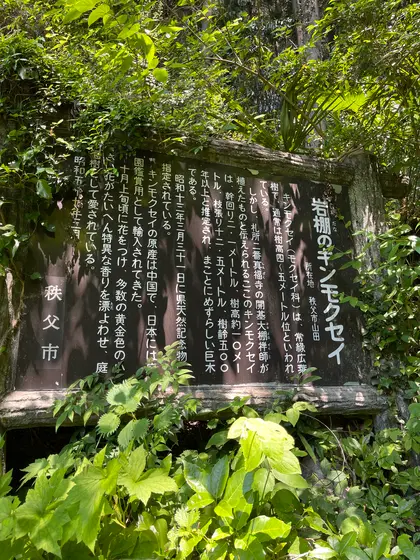 岩棚のキンモクセイ
所在地 秩父市山田
キンモクセイ(モクセイ科)は、常緑広葉
樹で、通常は樹高四、五メートル位といわれ
ている。
しかし、札所二番真福寺の開基大棚禅師が
植えたものと伝えられるここのキンモクセイ
は、幹回り二・一メートル、樹高約一〇メー
トル、枝張り十二・五メートル、樹齢五〇〇
年以上と推定され、まことにめずらしい巨木
である。
昭和十三年三月三十一日に県天然記念物
指定されている。
キンモクセイの原産は中国で、日本には
園鑑賞用として輸入されてきた。
十月上旬頃に花をつけ、多数の黄金色の小
さい花がたいへん特異な香りを漂よわせ、庭
樹として愛されている。
昭和五
秩父市